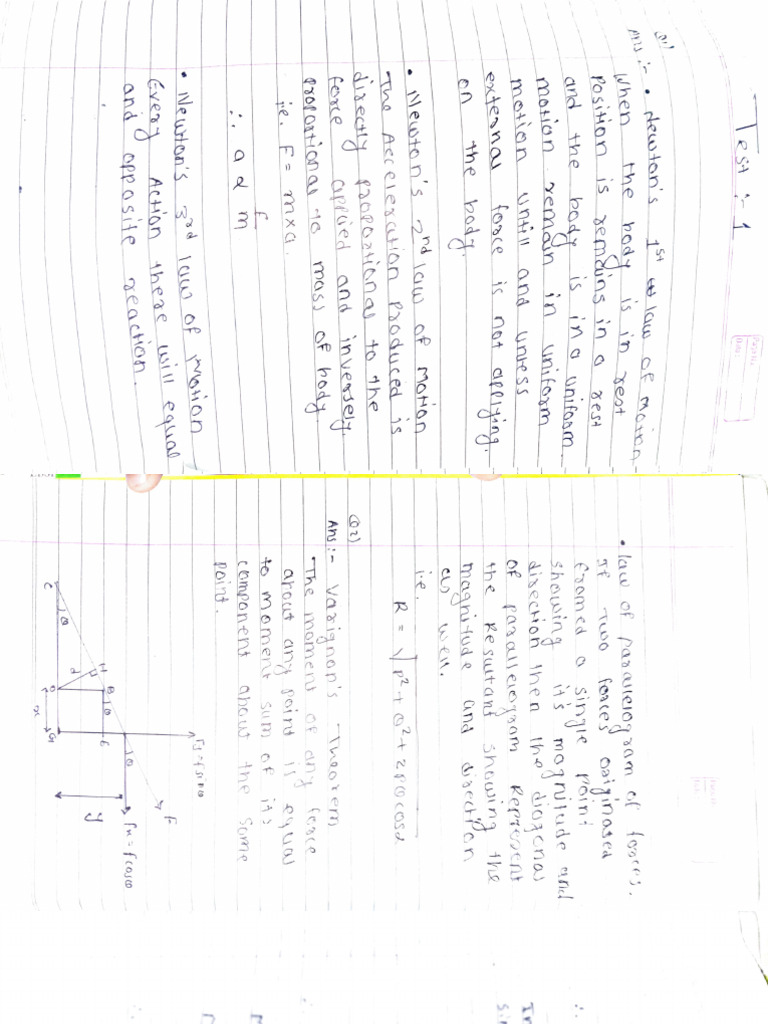 Test :- 1
Q1)
Ans :- • Newton's 1st law of motion
When the body is in rest
position is remains in a rest
and the body is in a uniform
motion remain in uniform
motion untill and unless
external force is not applying.
on the body.
• Newton's 2nd law of motion
The Acceleration produced is
directly proportional to the
force applied and inversely
proportional to mass of body.
i.e. F = m×a.
∴ a α F/m
• Newton's 3rd law of motion
Every Action there will equal
and opposite reaction.
• law of parallelogram of forces.
If two forces originated
fromed a single point
showing it's magnitude and
direction then the diagonal
of parallelogram Represent
the Resultant showing the
magnitude and direction
as well.
i.e.
R = √P²+Q²+2PQcosα
Q2)
Ans:- Varignon's Theorem
The moment of any force
about any point is equal
to moment sum of it's
component about the same
point.
Fy=Fsinθ
F
Fx=Fcosθ
θ
H
B
θ
E
d
y
C
θ
O
G
x